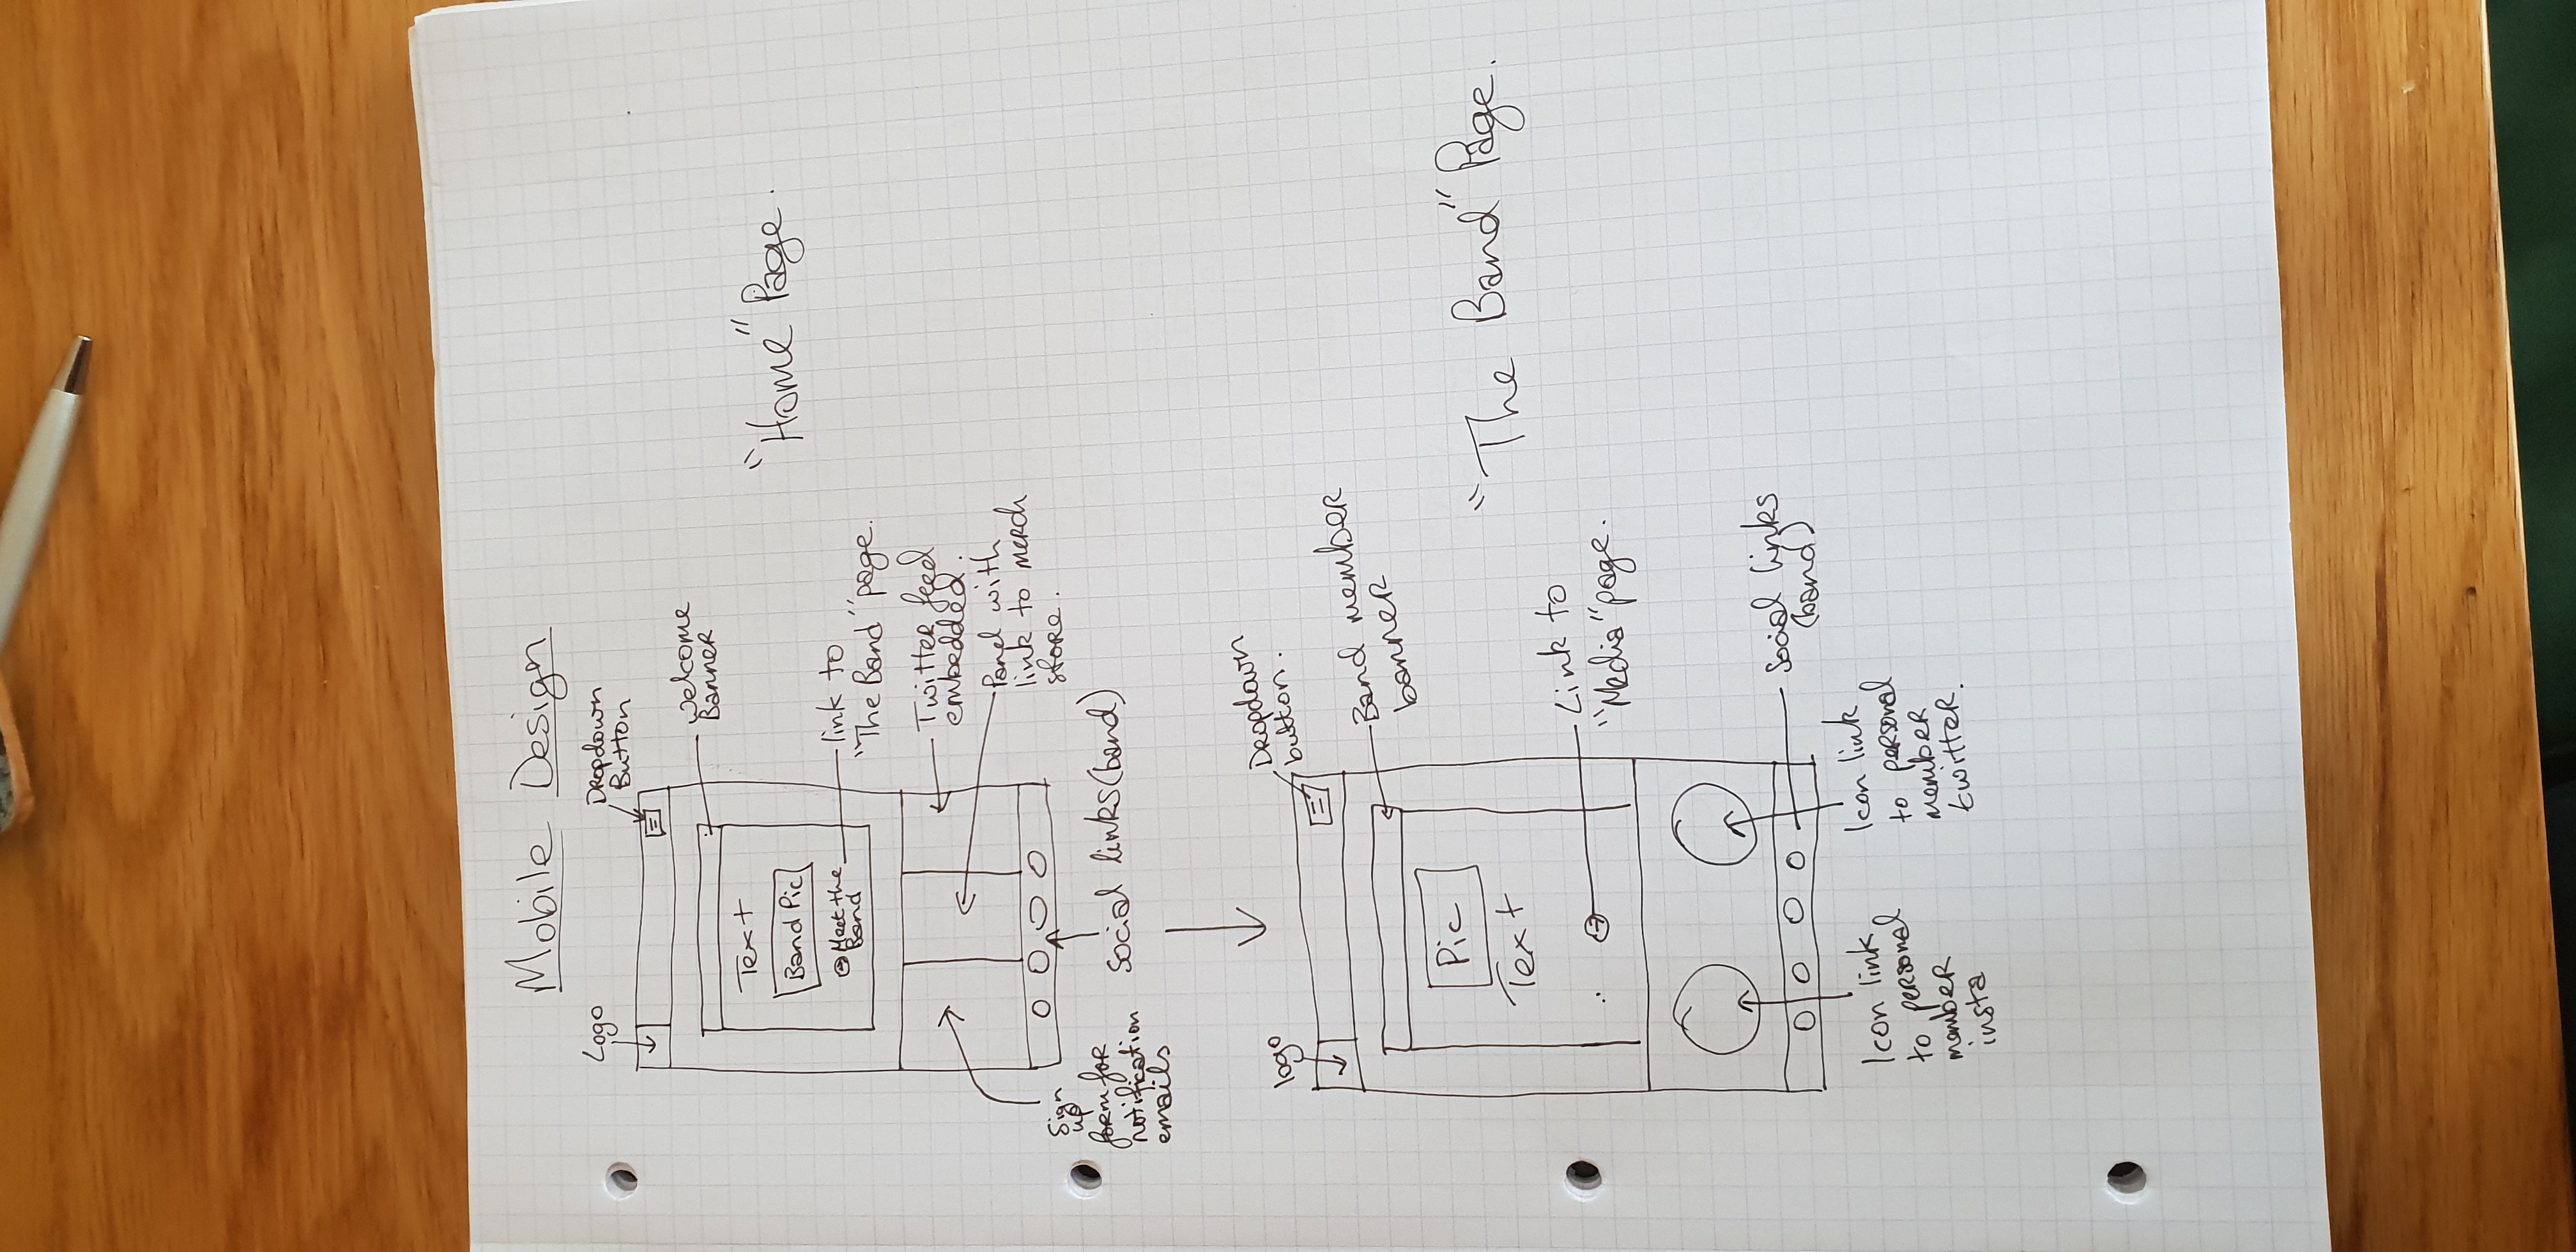 Mobile Design
Logo
Dropdown
Button
Welcome
Banner
Text
Band Pic
Meet the
Band
"Home" Page.
link to
"The Band" page.
Twitter feed
embedded.
Panel with
link to merch
store.
Sign
up
form for
notification
emails
Social links (band)
logo
Dropdown
button.
Band member
banner
Pic
Text
"The Band" Page.
Link to
"Media" page.
Social links
(band)
Icon link
to personal
member
insta
Icon link
to personal
member
twitter.